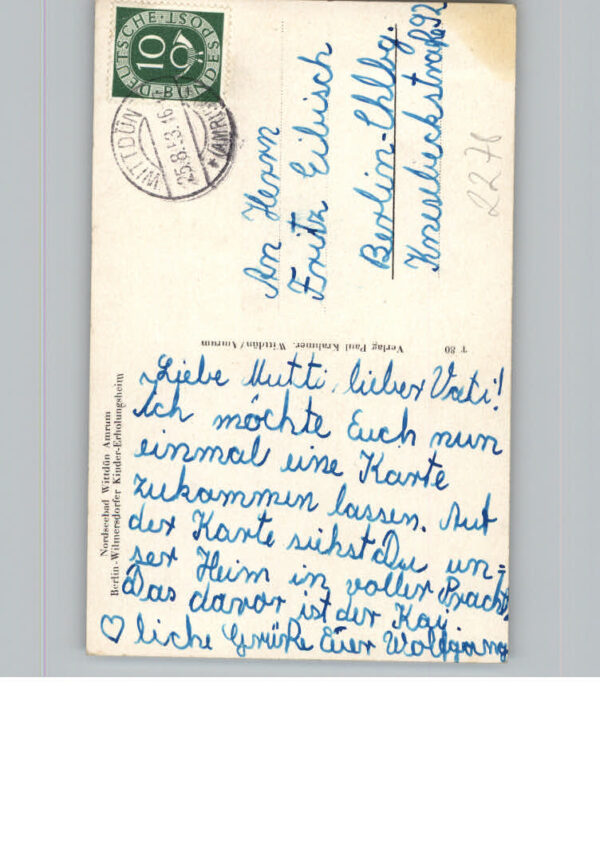 DEUTSCHE·POST·BUNDES
10
WITTDÜN
25.8.53.16
*(AMRUM
An Herrn
Fritz Eibisch
Berlin-Chlbg.
Knesebeckstraße 92
2278
Verlag Paul Krahmer, Wittdün/Amrum
T 80
Nordseebad Wittdün Amrum
Berlin-Wilmersdorfer Kinder-Erholungsheim
Liebe Mutti, lieber Vati!
Ich möchte Euch nun
einmal eine Karte
zukammen lassen. Auf
der Karte siehst Du un=
ser Heim in voller Pracht.
Das davor ist der Kai.
♡ liche Grüße Euer Wolfgang